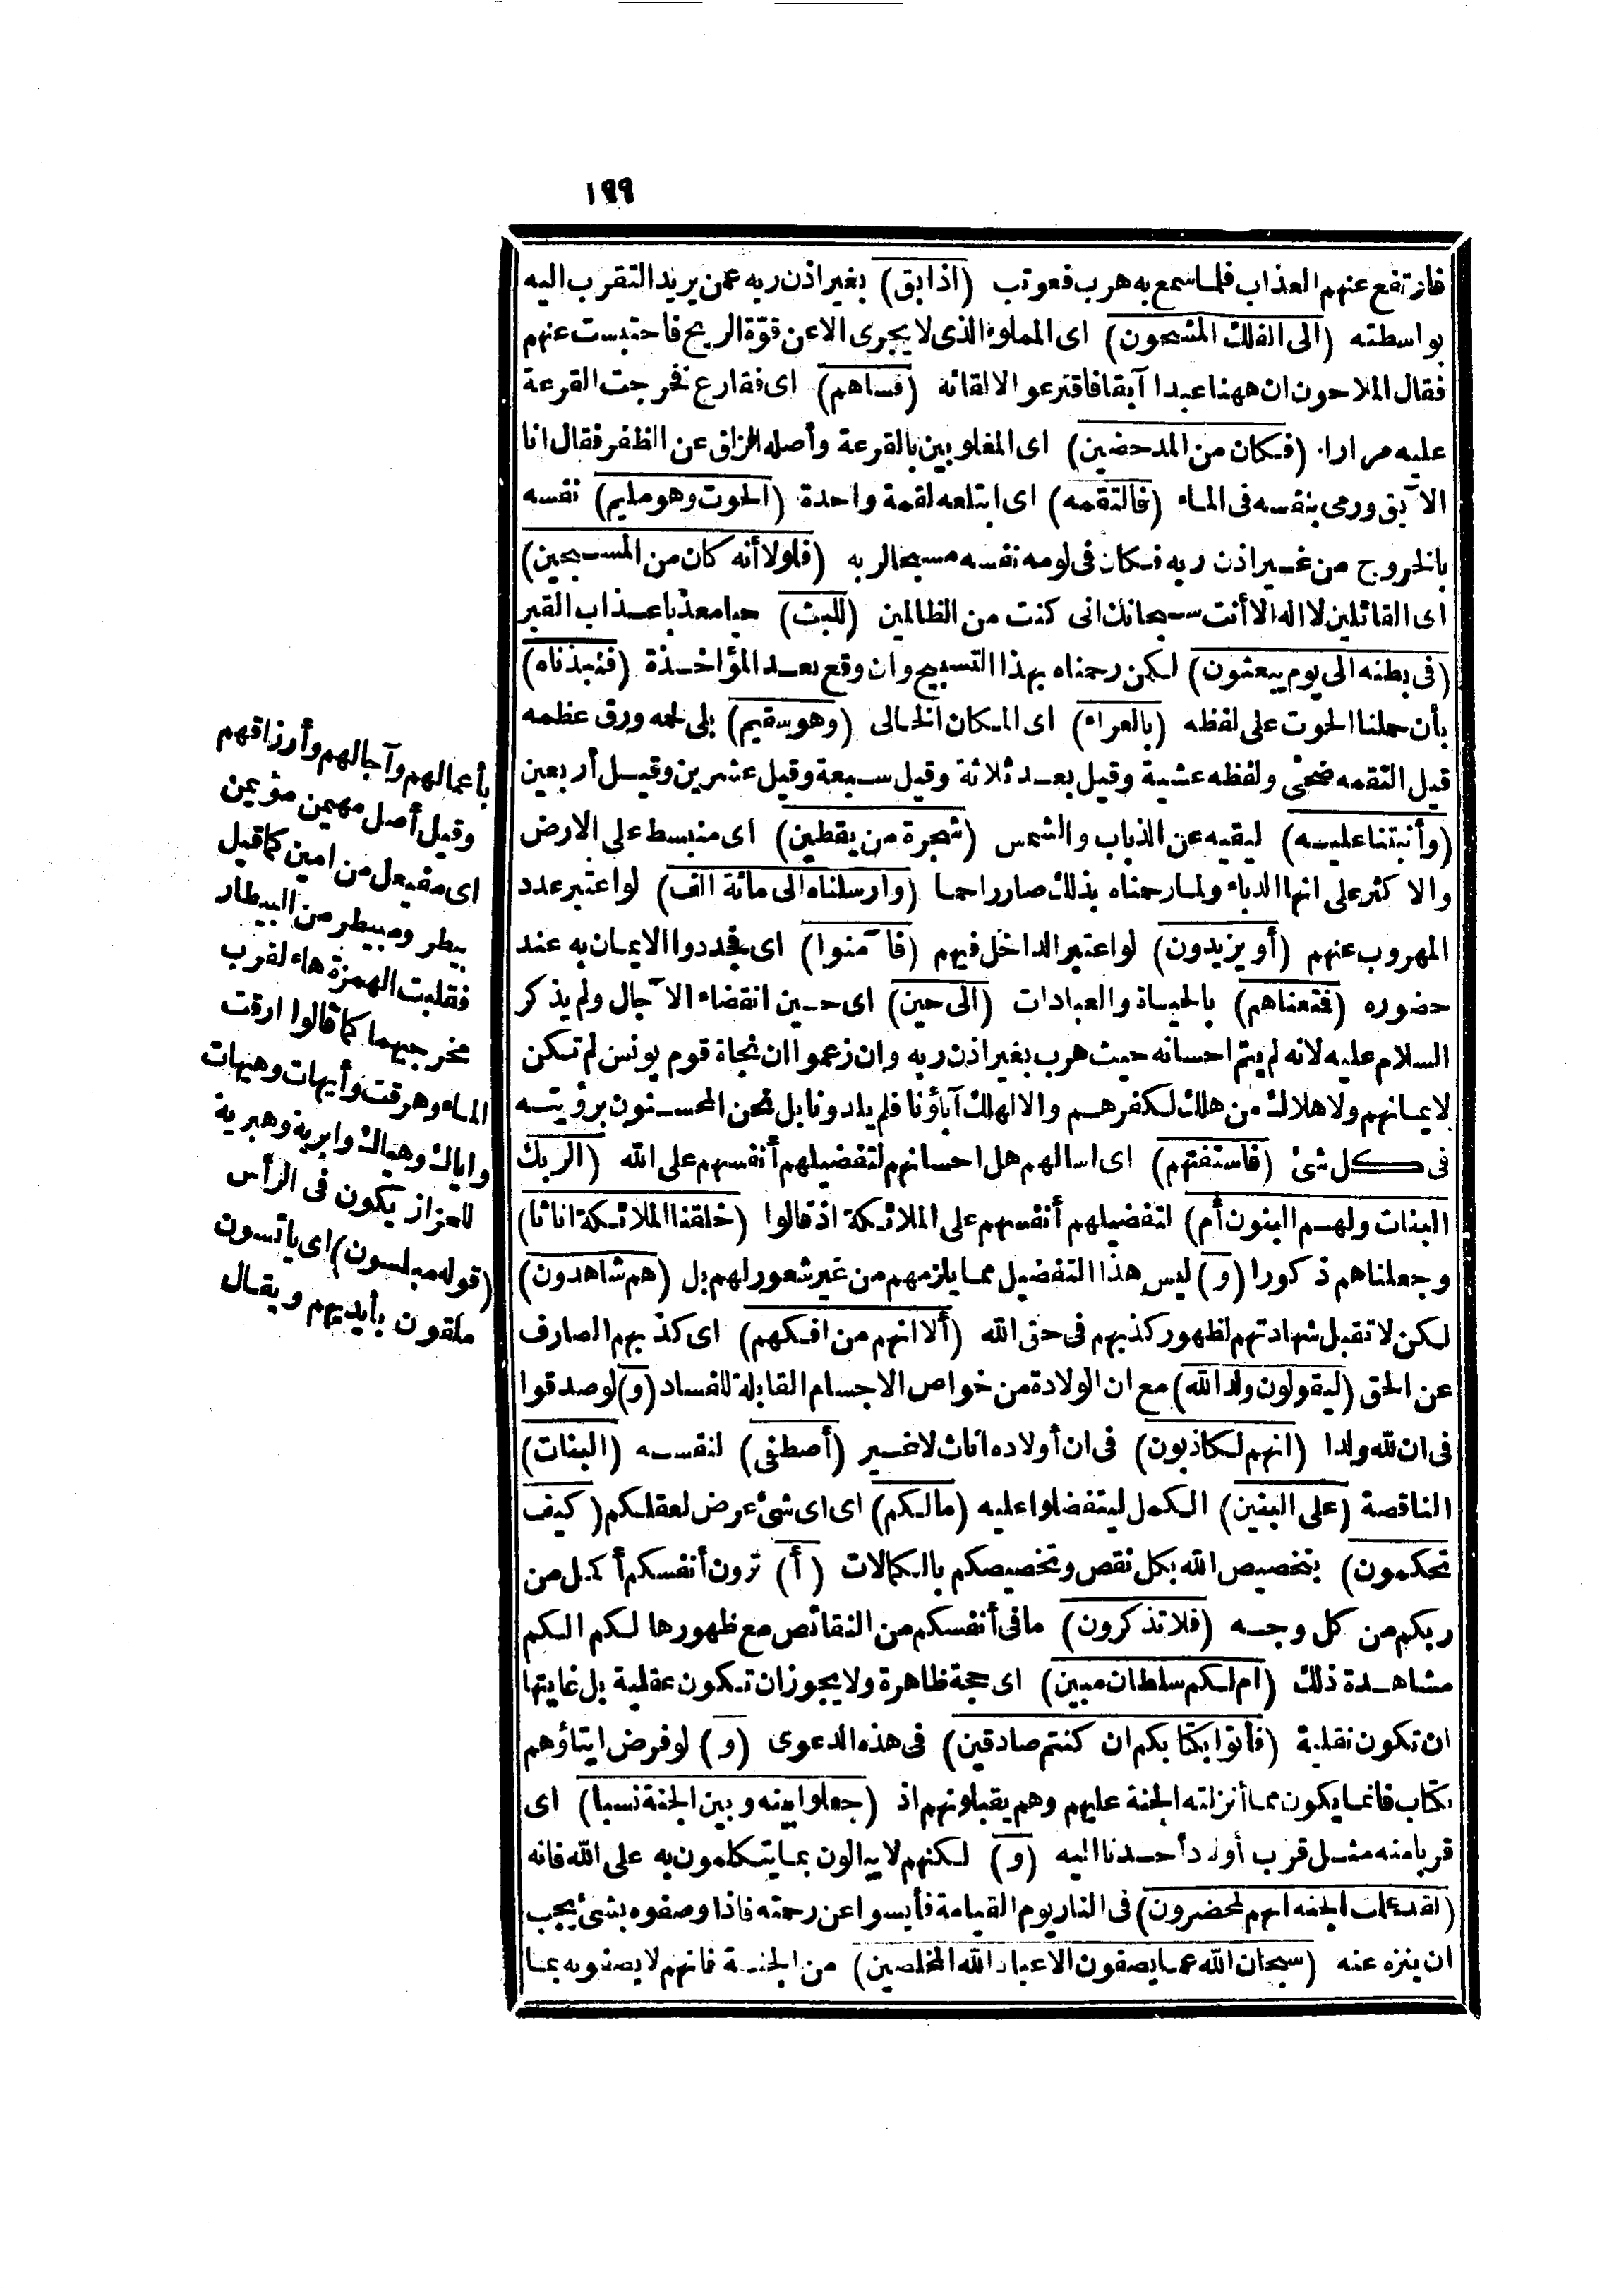 ١٩٩
فارتفع عنهم العذاب فلما سمع به هرب فعوتب (اذ ابق) بغير اذن ربه عمن يريد التقرب اليه
بواسطته (الى الفلك المشحون) اى المملوء الذى لا يجرى الا عن قوّة الريح فاحتبست عنهم
فقال الملاحون ان ههنا عبدا آبقا فاقترعوا لالقائه (فساهم) اى فقارع فخرجت القرعة
عليه مرارا (فكان من المدحضين) اى المغلوبين بالقرعة وأصله الزلق عن الظفر فقال انا
الآبق ورمى بنفسه فى الماء (فالتقمه) اى ابتلعه لقمة واحدة (الحوت وهو مليم) نفسه
بالخروج من غير اذن ربه فكان فى لومه نفسه مسبحا لربه (فلولا أنه كان من المسبحين)
اى القائلين لا اله الا أنت سبحانك انى كنت من الظالمين (للبث) حيا معذبا عذاب القبر
(فى بطنه الى يوم يبعثون) لكن رحمناه بهذا التسبيح وان وقع بعد المؤاخذة (فنبذناه)
بأن حملنا الحوت على لفظه (بالعراء) اى المكان الخالى (وهو سقيم) بلى لحمه ورق عظمه
قيل التقمه ضحى ولفظه عشية وقيل بعد ثلاثة وقيل سبعة وقيل عشرين وقيل أربعين
(وأنبتنا عليه) ليقيه عن الذباب والشمس (شجرة من يقطين) اى منبسط على الارض
والاكثر على انها الدباء ولما رحمناه بذلك صار راحما (وارسلناه الى مائة الف) لو اعتبر عدد
المهروب عنهم (أو يزيدون) لو اعتبر الداخل فيهم (فآمنوا) اى فجددوا الايمان به عند
حضوره (فمتعناهم) بالحياة والعبادات (الى حين) اى حين انقضاء الآجال ولم يذكر
السلام عليه لانه لم يتم احسانه حيث هرب بغير اذن ربه وان زعموا ان نجاة قوم يونس لم تكن
لايمانهم ولا هلاك من هلك لكفرهم والا لهلك آباؤنا فلم يلدونا بل نحن المحسنون برؤيته
فى كل شئ (فاستفتهم) اى اسالهم هل احسانهم لتفضيلهم أنفسهم على الله (ألربك
البنات ولهم البنون أم) لتفضيلهم أنفسهم على الملائكة اذ قالوا (خلقنا الملائكة اناثا)
وجعلناهم ذكورا (و) ليس هذا التفضيل مما يلزمهم من غير شعور لهم بل (هم شاهدون)
لكن لا تقبل شهادتهم لظهور كذبهم فى حق الله (ألا انهم من افكهم) اى كذبهم الصارف
عن الحق (ليقولون ولد الله) مع ان الولادة من خواص الاجسام القابلة للفساد (و) لو صدقوا
فى ان لله ولدا (انهم لكاذبون) فى ان أولاده اناث لا غير (أصطفى) لنفسه (البنات)
الناقصة (على البنين) الكمل ليتفضلوا عليه (مالكم) اى اى شئ عرض لعقلكم (كيف
تحكمون) بتخصيص الله بكل نقص وتخصيصكم بالكمالات (أ) ترون أنفسكم أكمل من
ربكم من كل وجه (فلا تذكرون) ما فى أنفسكم من النقائص مع ظهورها لكم الكم
مشاهدة ذلك (ام لكم سلطان مبين) اى حجة ظاهرة ولا يجوز ان تكون عقلية بل غايتها
ان تكون نقلية (فأتوا بكتابكم ان كنتم صادقين) فى هذه الدعوى (و) لو فرض ايتاؤهم
بكتاب فانما يكون مما أنزلته الجنة عليهم وهم يقبلونهم اذ (جعلوا بينه وبين الجنة نسبا) اى
قربا منه مثل قرب أولاد أحدنا اليه (و) لكنهم لا يبالون بما يتكلمون به على الله فانه
(لقد علمت الجنة انهم لمحضرون) فى النار يوم القيامة فأيسوا عن رحمته فاذا وصفوه بشئ يجب
ان ينزه عنه (سبحان الله عما يصفون الا عباد الله المخلصين) من الجنة فانهم لا يصفونه بما
بأعمالهم وآجالهم وأرزاقهم
وقيل أصل مهيمن مؤيمن
اى مفيعل من امين كما قيل
بيطر ومبيطر من البيطار
فقلبت الهمزة هاء لقرب
مخرجيهما كما قالوا ارقت
الماء وهرقت وأيهات وهيهات
واياك وهياك وابرية وهبرية
للحزاز يكون فى الرأس
(قوله مبلسون) اى يائسون
ملقون بأيديهم ويقال